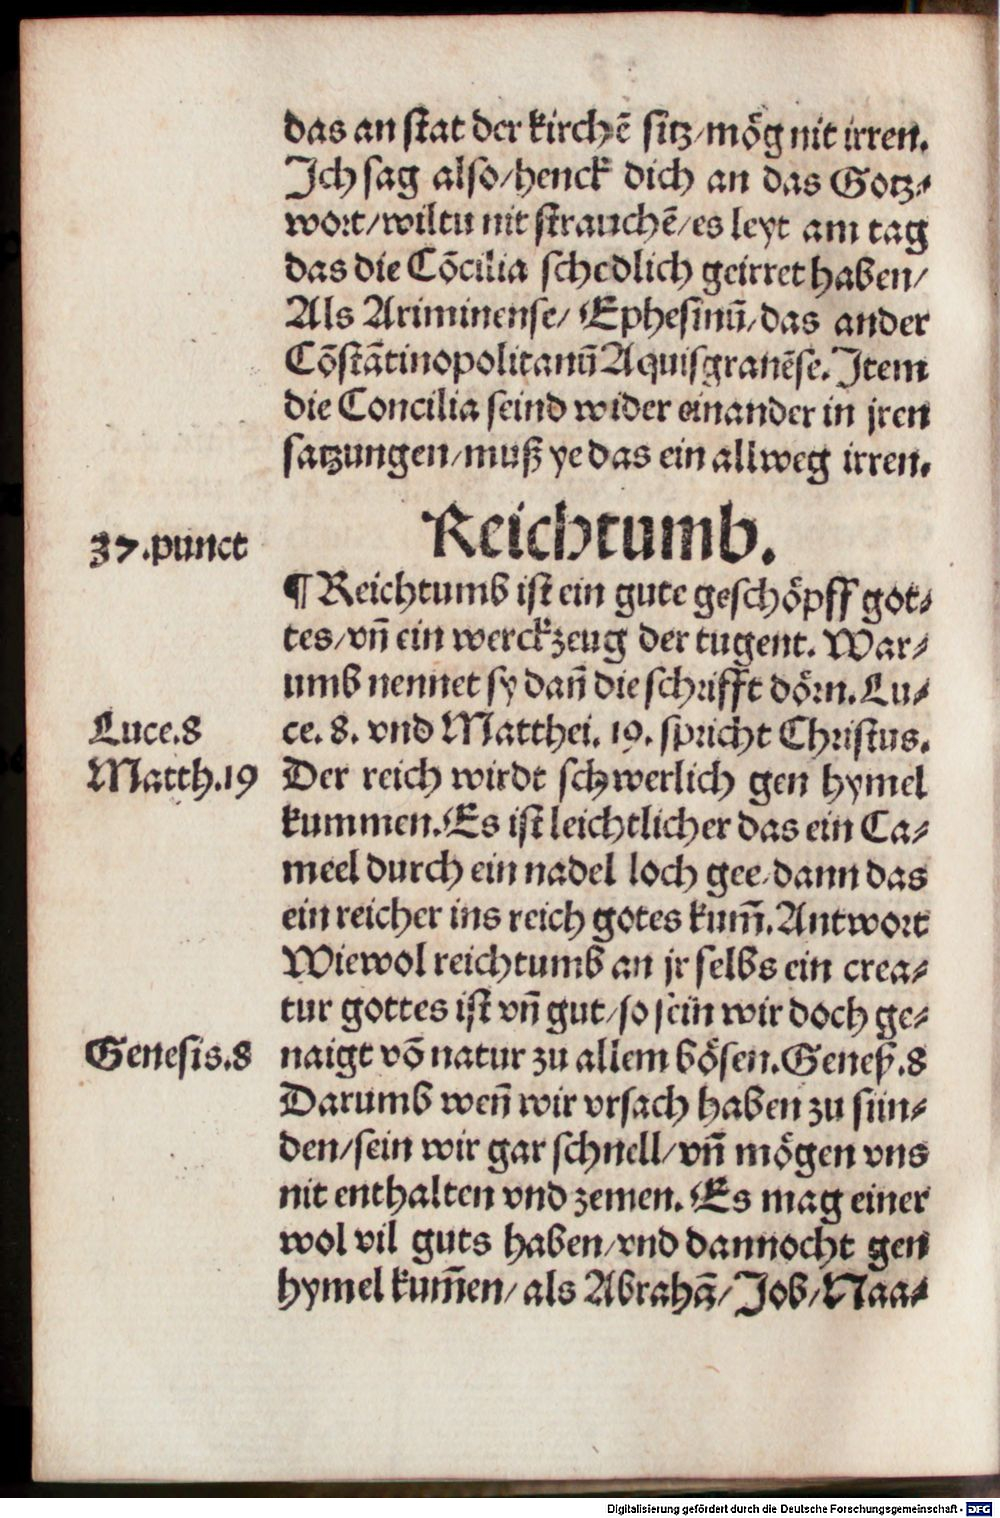 das an stat der kirchē sitz/mög nit irren.
Ich sag also/henck dich an das Gotz⸗
wort/wiltu nit strauchē/es leyt am tag
das die Cōcilia schedlich geirret haben/
Als Ariminense/ Ephesinū/das ander
Cōstātinopolitanū Aquisgranēse. Item
die Concilia seind wider einander in jren
satzungen/muß ye das ein allweg irren.
Reichtumb.
37.punct
¶ Reichtumb ist ein gute geschöpff got⸗
tes/vn̄ ein werckzeug der tugent. War⸗
umb nennet sy dan̄ die schrifft dörn. Lu⸗
Luce.8
ce. 8. vnd Matthei. 19. spricht Christus.
Matth.19
Der reich wirdt schwerlich gen hymel
kummen. Es ist leichtlicher das ein Ca⸗
meel durch ein nadel loch gee/dann das
ein reicher ins reich gotes kum̄. Antwort
Wiewol reichtumb an jr selbs ein crea⸗
tur gottes ist vn̄ gut/so sein wir doch ge⸗
Genesis.8
naigt vō natur zu allem bösen. Geneß.8
Darumb wen̄ wir vrsach haben zu sün⸗
den/sein wir gar schnell/vn̄ mögen vns
nit enthalten vnd zemen. Es mag einer
wol vil guts haben/vnd dannocht gen
hymel kum̄en/ als Abrahā/ Job/Naa⸗
Digitalisierung gefördert durch die Deutsche Forschungsgemeinschaft - DFG